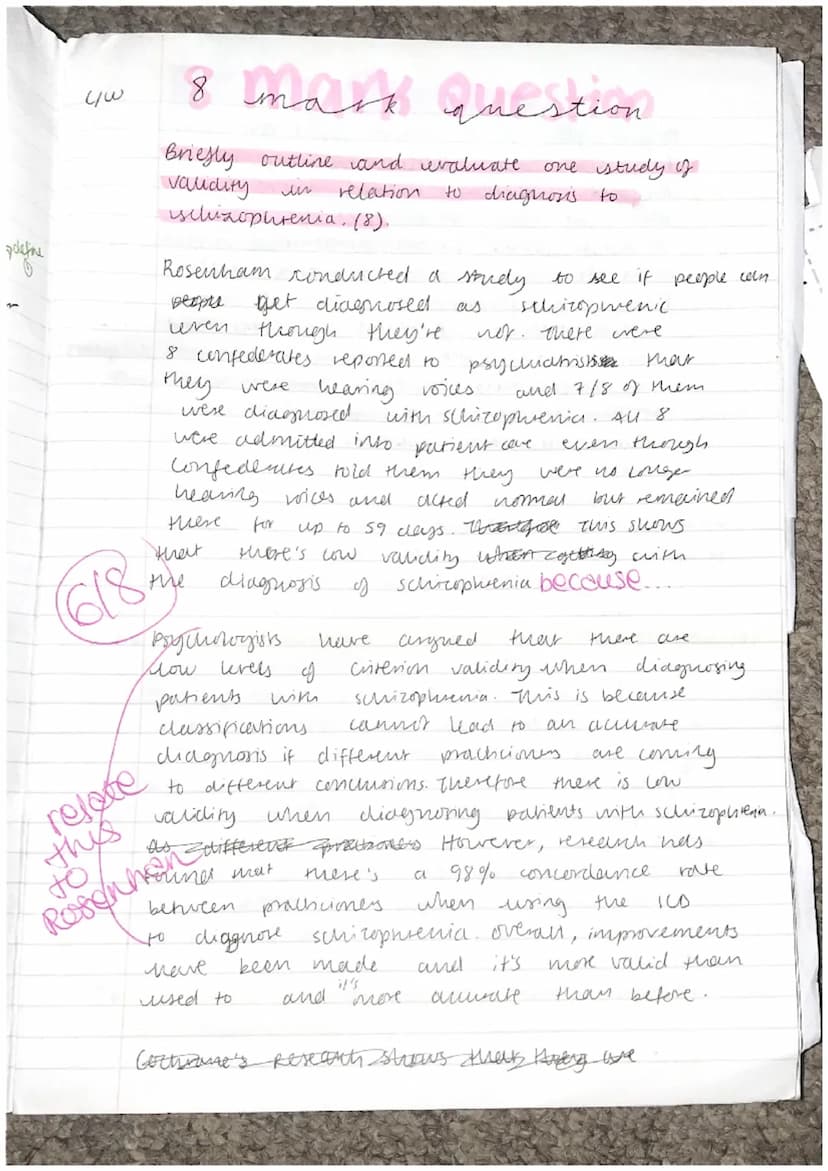 C/W
8 mark question
8 mark question
Briefly outline and evaluate one study of
validity in relation to diagnosis to
schizophrenia. (8).
define
Rosenham conducted a study to see if people can
people get diagnosed as schizophrenic
even though they're not. There were
8 confederates reported to psychiatrists that
they were hearing voices and 7/8 of them
were diagnosed with schizophrenia. All 8
were admitted into patient care even though
confederates told them they were no longer
hearing voices and acted normal but remained
there for up to 59 days. Therefore This shows
that there's low validity when getting with
the diagnosis of schizophrenia because...
6/8
Psychologists have argued that there are
low levels of criterion validity when diagnosing
patients with schizophrenia. This is because
classifications cannot lead to an accurate
diagnosis if different practicioners are coming
to different conclusions. Therefore there is low
validity when diagnosing patients with schizophrenia.
As different practioners However, research has
found that there's a 98% concordance rate
between practicioners when using the ICD
to diagnose schizophrenia. Overall, improvements
have been made and it's more valid than
used to and it's more accurate than before.
relate
this
to
Rosenhan
Cochrane's research shows that they are